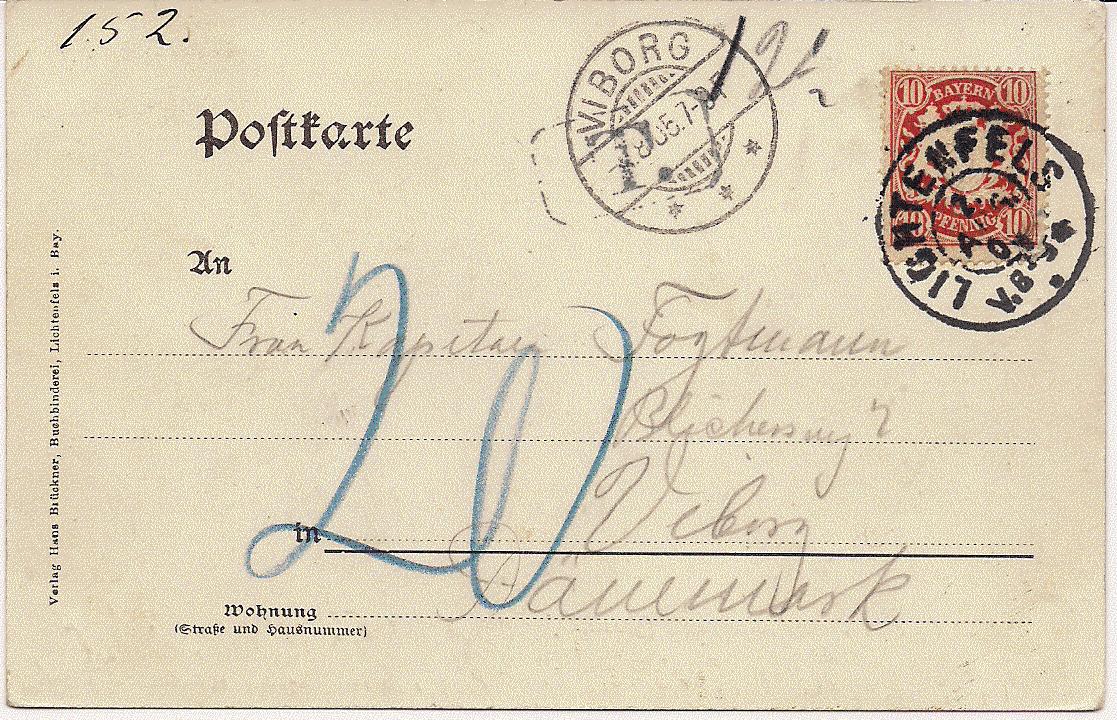 152.
VIBORG
7-8F
T.
10 BAYERN 10
10 PFENNIG 10
LICHTENFELS
Postkarte
An
Frau Kapitain Fogtmann
Blichersvej 2
Viborg
in
Dänemark
20
Wohnung
(Straße und Hausnummer)
Verlag Hans Brückner, Buchbinderei, Lichtenfels i. Bay.